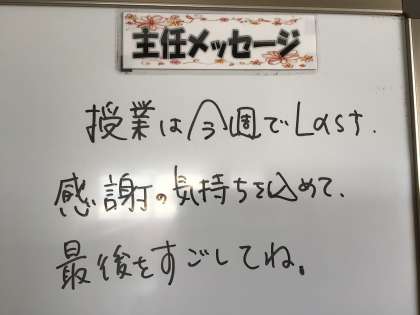 主任メッセージ
授業は今週でLast.
感謝の気持ちを込めて、
最後をすごしてね。